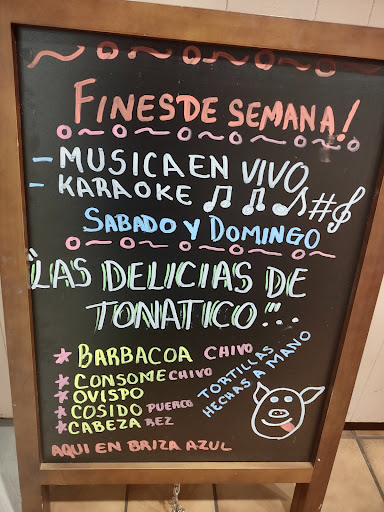 FINES DE SEMANA!
- MUSICA EN VIVO
- KARAOKE
SABADO Y DOMINGO
"LAS DELICIAS DE
TONATICO"...
* BARBACOA CHIVO
* CONSOME CHIVO
* OVISPO
* COSIDO PUERCO
* CABEZA REZ
TORTILLAS
HECHAS A MANO
AQUI EN BRIZA AZUL